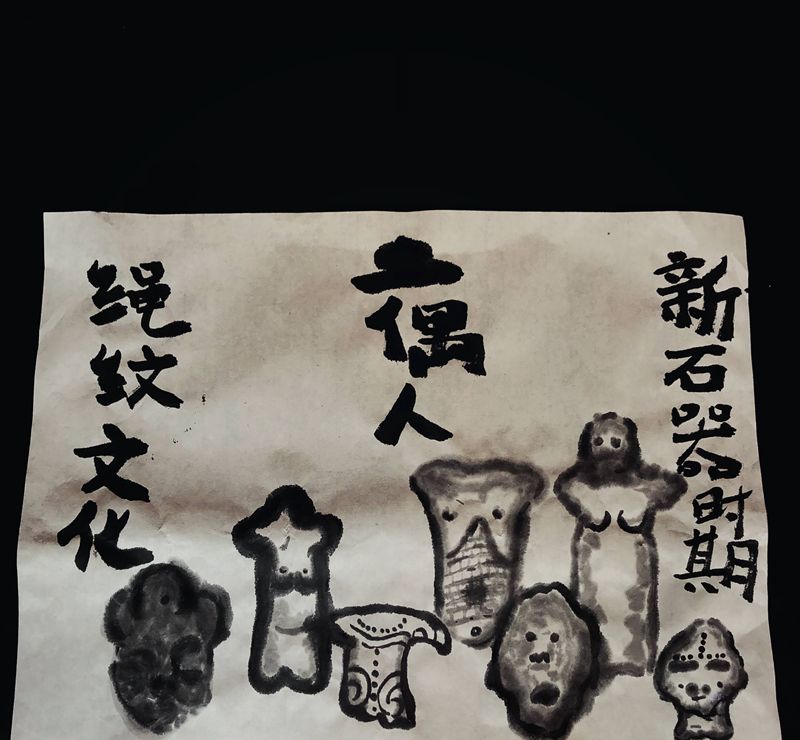 新石器时期
土偶人
绳纹文化